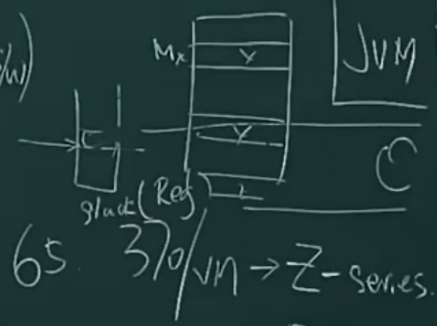 /w)
Mx
Y
JVM
C
Y
C
stack (Reg)
65. 370/VM → Z-series.